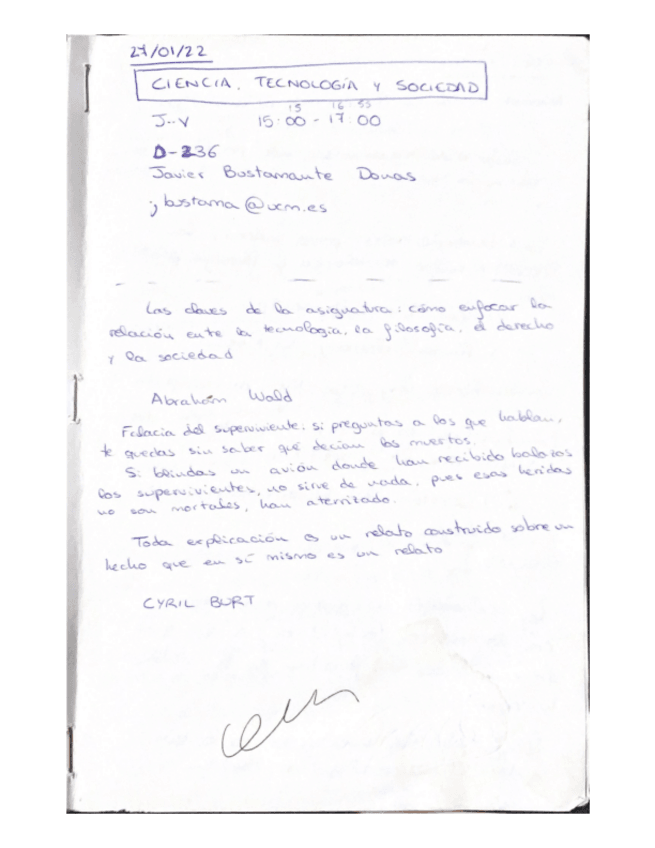 27/01/22
CIENCIA, TECNOLOGÍA Y SOCIEDAD
15 16 55
J-V 15:00 - 17:00
D-236
Javier Bustamante Donas
jbustama@ucm.es
Las claves de la asignatura: cómo enfocar la
relación ente la tecnología, la filosofía, el derecho
y la sociedad
Abraham Wald
Falacia del superviviente: si preguntas a los que hablan,
te quedas sin saber qué decían los muertos.
Si blindas un avión donde han recibido balazos
los supervivientes, no sirve de nada, pues esas heridas
no son mortales, han aterrizado.
Toda explicación es un relato construido sobre un
hecho que en sí mismo es un relato
CYRIL BURT